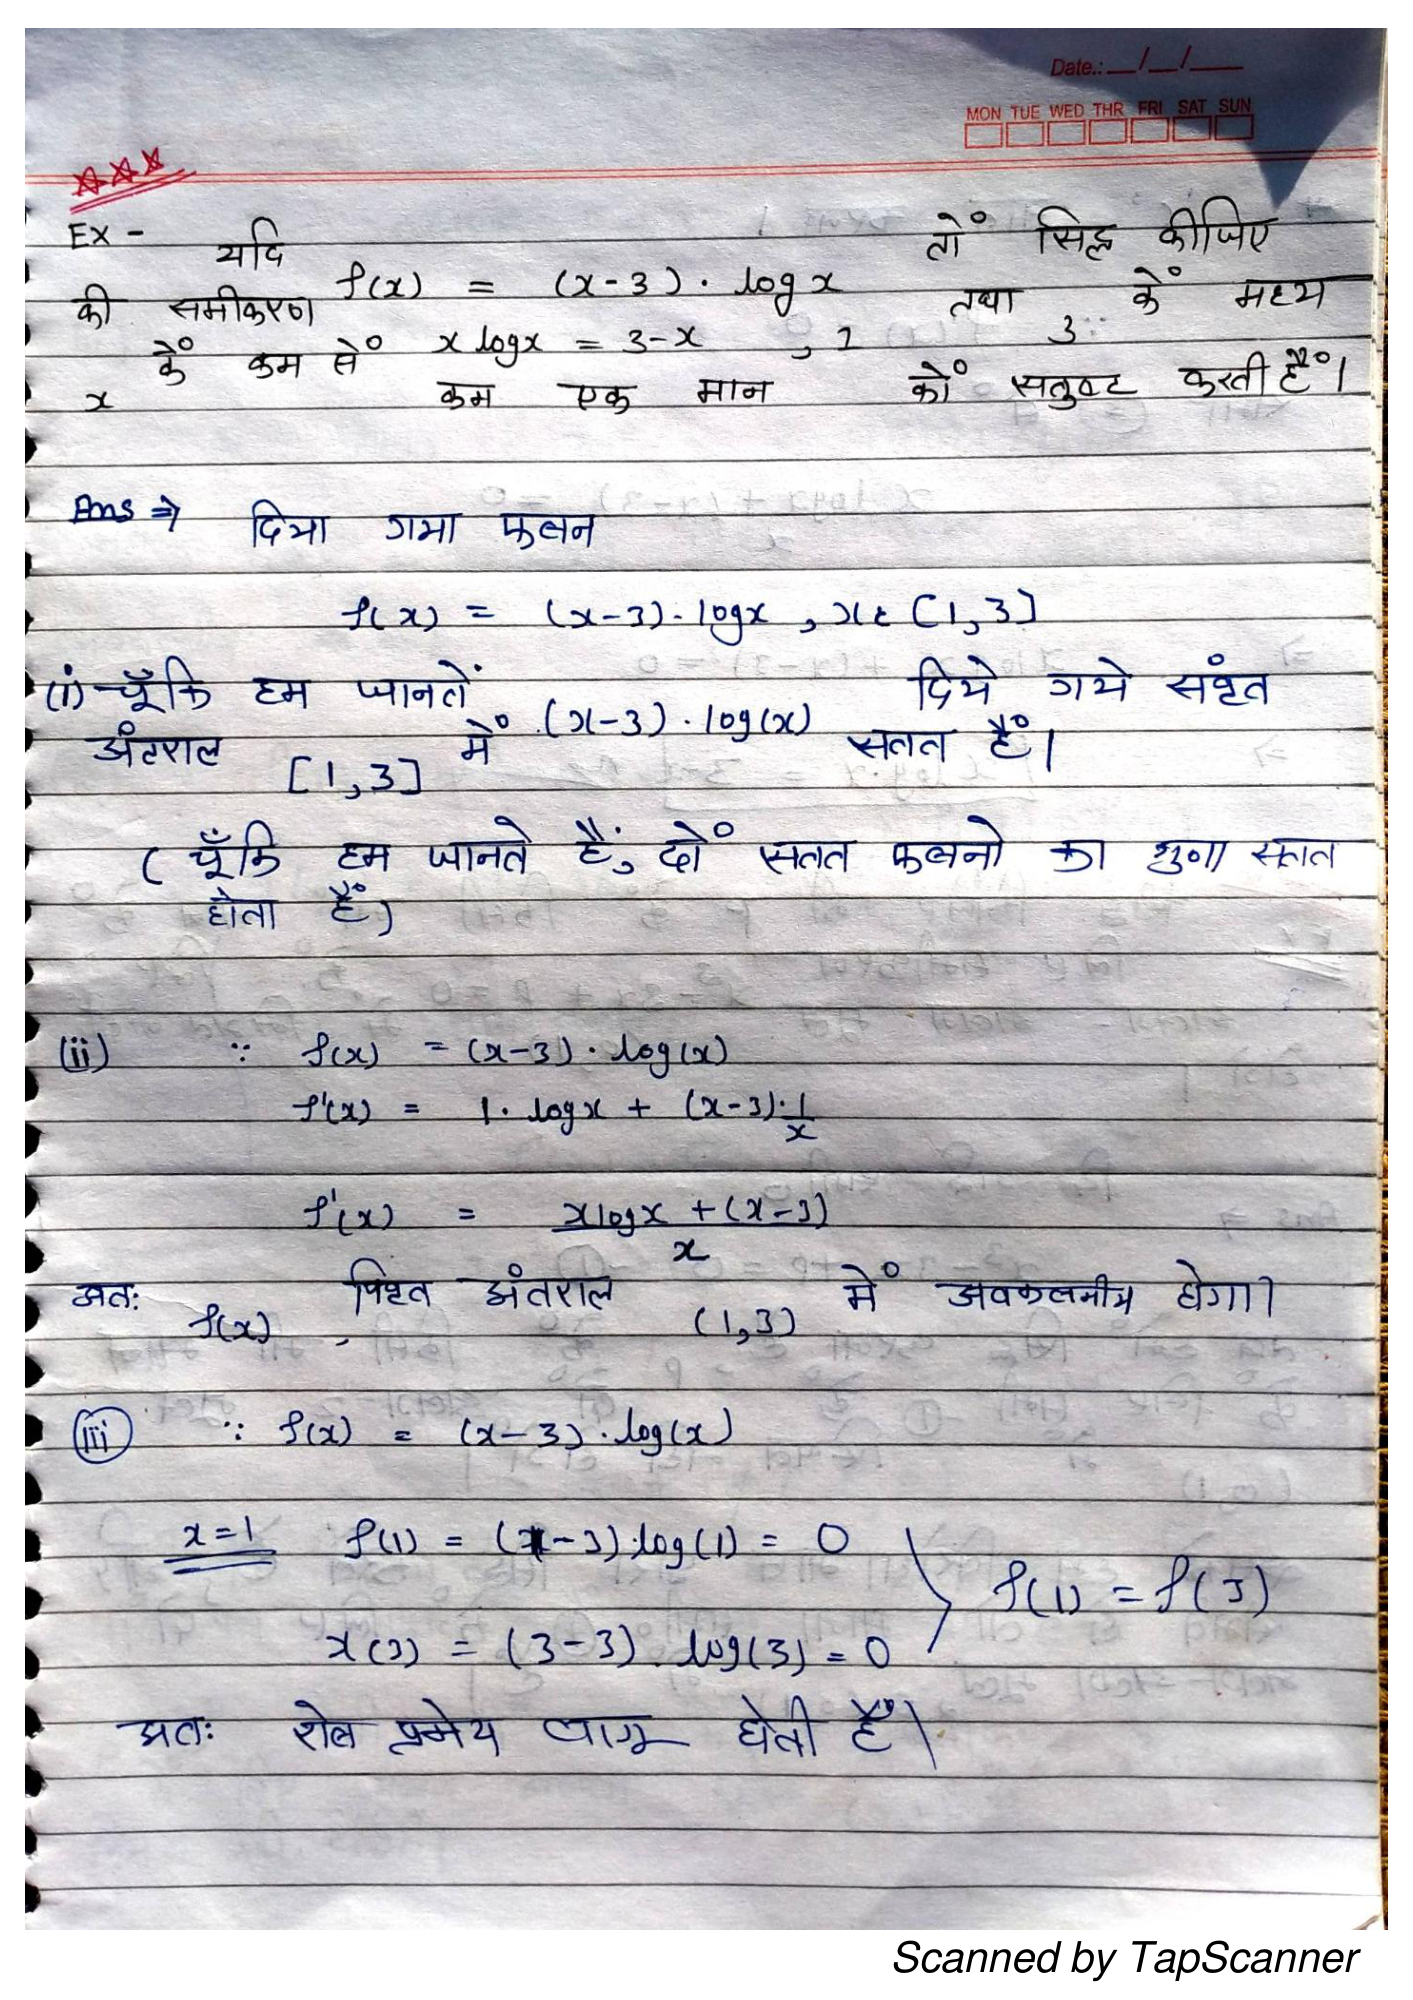 Date.: __/__/__
MON TUE WED THR FRI SAT SUN
Ex - यदि f(x) = (x-3) · log x तों सिद्ध कीजिए
की समीकरण x log x = 3-x , 1 तथा 3 कें मध्य
x कें कम सें कम एक मान कों सतुष्ट करती हैं।
Ans ⇒ दिया गया फलन
f(x) = (x-3) · log x , x ε [1,3]
(i) चूँकि हम जानतें (x-3) · log(x) दिये गये संवृत
अंतराल [1,3] में सतत हैं।
( चूँकि हम जानते हैं, दों सतत फलनो का गुणा सतत
होता हैं)
(ii) ∵ f(x) = (x-3) · log(x)
f'(x) = 1 · log x + (x-3) · 1/x
f'(x) = x log x + (x-3) / x
अतः f(x), विवृत अंतराल (1,3) में अवकलनीय होगा।
(iii) ∵ f(x) = (x-3) · log(x)
x=1 f(1) = (1-3) · log(1) = 0
f(1) = f(3)
x(3) = (3-3) · log(3) = 0
अतः रोल प्रमेय लागू होती हैं।
Scanned by TapScanner